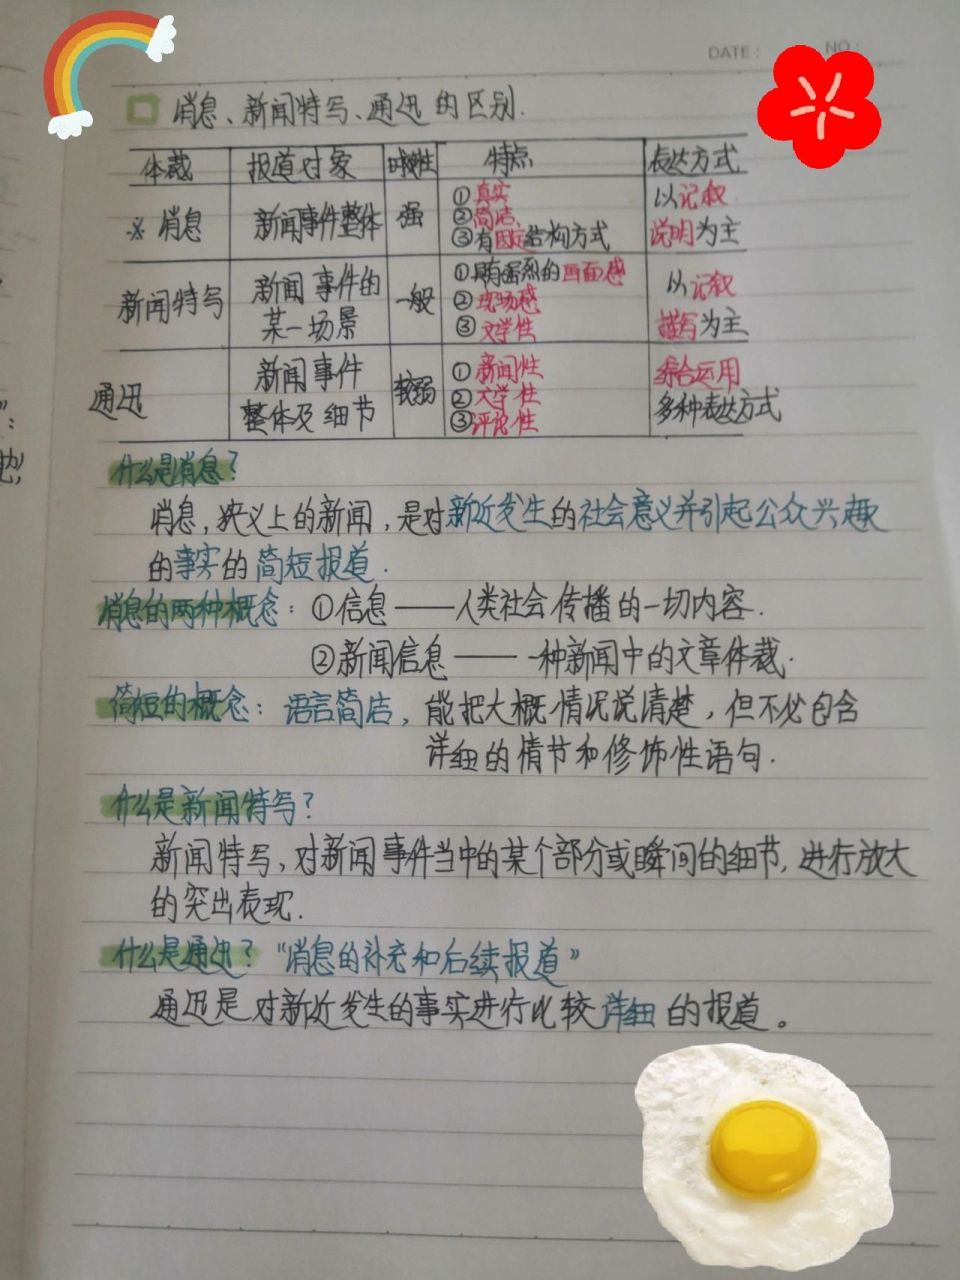 DATE: NO:
消息、新闻特写、通迅的区别.
体裁 报道对象 时效性 特点 表达方式
※ 消息 新闻事件整体 强 ①真实 ②简洁、 ③有固定结构方式 以记叙 说明为主
新闻特写 新闻事件的某一场景 一般 ①具有强烈的画面感 ②现场感 ③文学性 以记叙 描写为主
通迅 新闻事件整体及细节 较强 ①新闻性 ②文学性 ③评论性 综合运用 多种表达方式
什么是消息?
消息,狭义上的新闻,是对新近发生的社会意义并引起公众兴趣
的事实的简短报道.
消息的两种概念:①信息——人类社会传播的一切内容.
②新闻信息——一种新闻中的文章体裁.
简短的概念:语言简洁,能把大概情况说清楚,但不必包含
详细的情节和修饰性语句.
什么是新闻特写?
新闻特写,对新闻事件当中的某个部分或瞬间的细节,进行放大
的突出表现.
什么是通迅?“消息的补充和后续报道”
通迅是对新近发生的事实进行比较详细的报道。